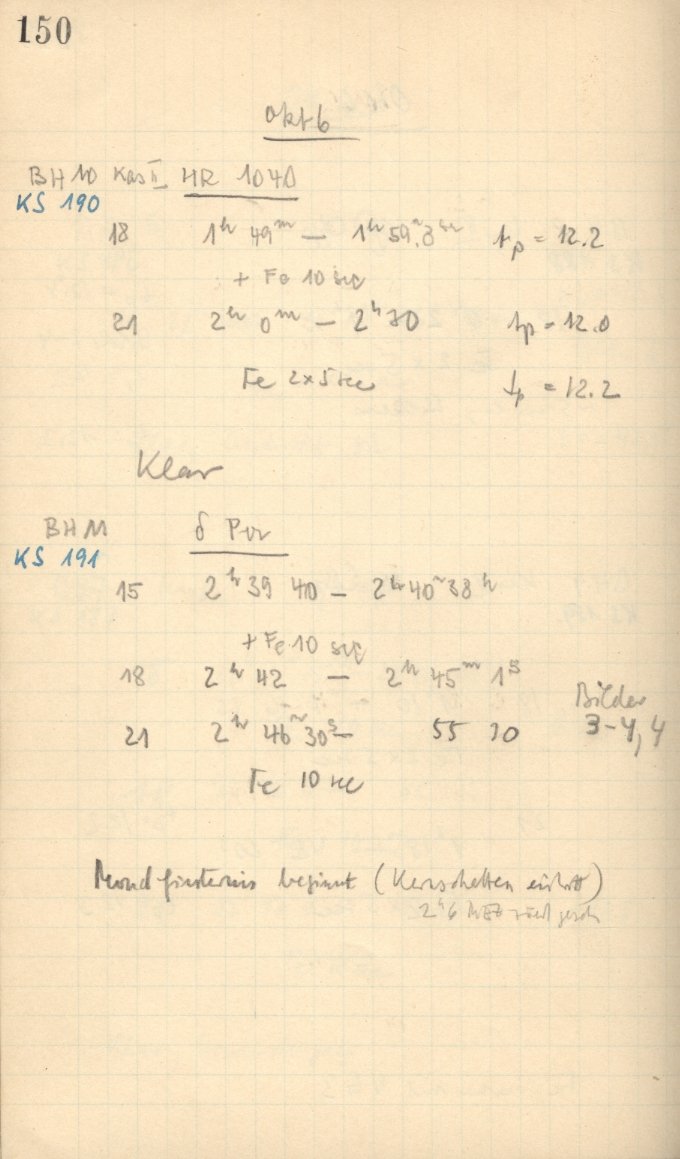 150
Okt 6
BH 10 Kas II HR 1040
KS 190
18 1h 49m — 1h 59.8 tp = 12.2
+ Fe 10 sec
21 2h 0m — 2h 30 tp = 12.0
Fe 2x5 sec tp = 12.2
Klar
BH 11 δ Per
KS 191
15 2h 39 40 — 2h 40m 38
+ Fe 10 sec
18 2h 42 — 2h 45m 1s
Bilder
21 2h 46m 30s — 55 30 3-4, 4
Fe 10 sec
Mondfinsternis beginnt (Kernschatten eintritt)
2h 6 MEZ